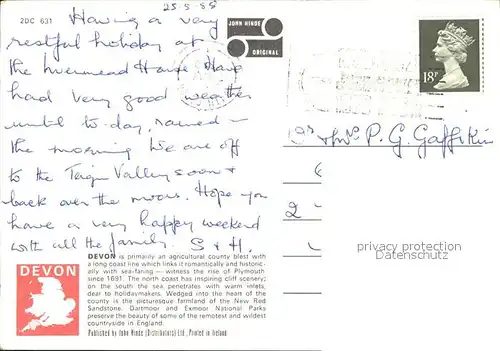 2DC 631
25-5-88
Having a very
restful holiday at
the Livermead House. Have
had very good weather
until to-day, rained
the morning. We are off
to the Valley soon &
back over the moors. Hope you
have a very happy weekend
with all the family. S & H.
JOHN HINDE
ORIGINAL
18P
P. G. Gaffikin
2
privacy protection
Datenschutz
DEVON
DEVON is primarily an agricultural county blest with
a long coast line which links it romantically and historic-
ally with sea-faring — witness the rise of Plymouth
since 1691. The north coast has inspiring cliff scenery;
on the south the sea penetrates with warm inlets,
dear to holidaymakers. Wedged into the heart of the
county is the picturesque farmland of the New Red
Sandstone. Dartmoor and Exmoor National Parks
preserve the beauty of some of the remotest and wildest
countryside in England.
Published by John Hinde (Distributors) Ltd., Printed in Ireland